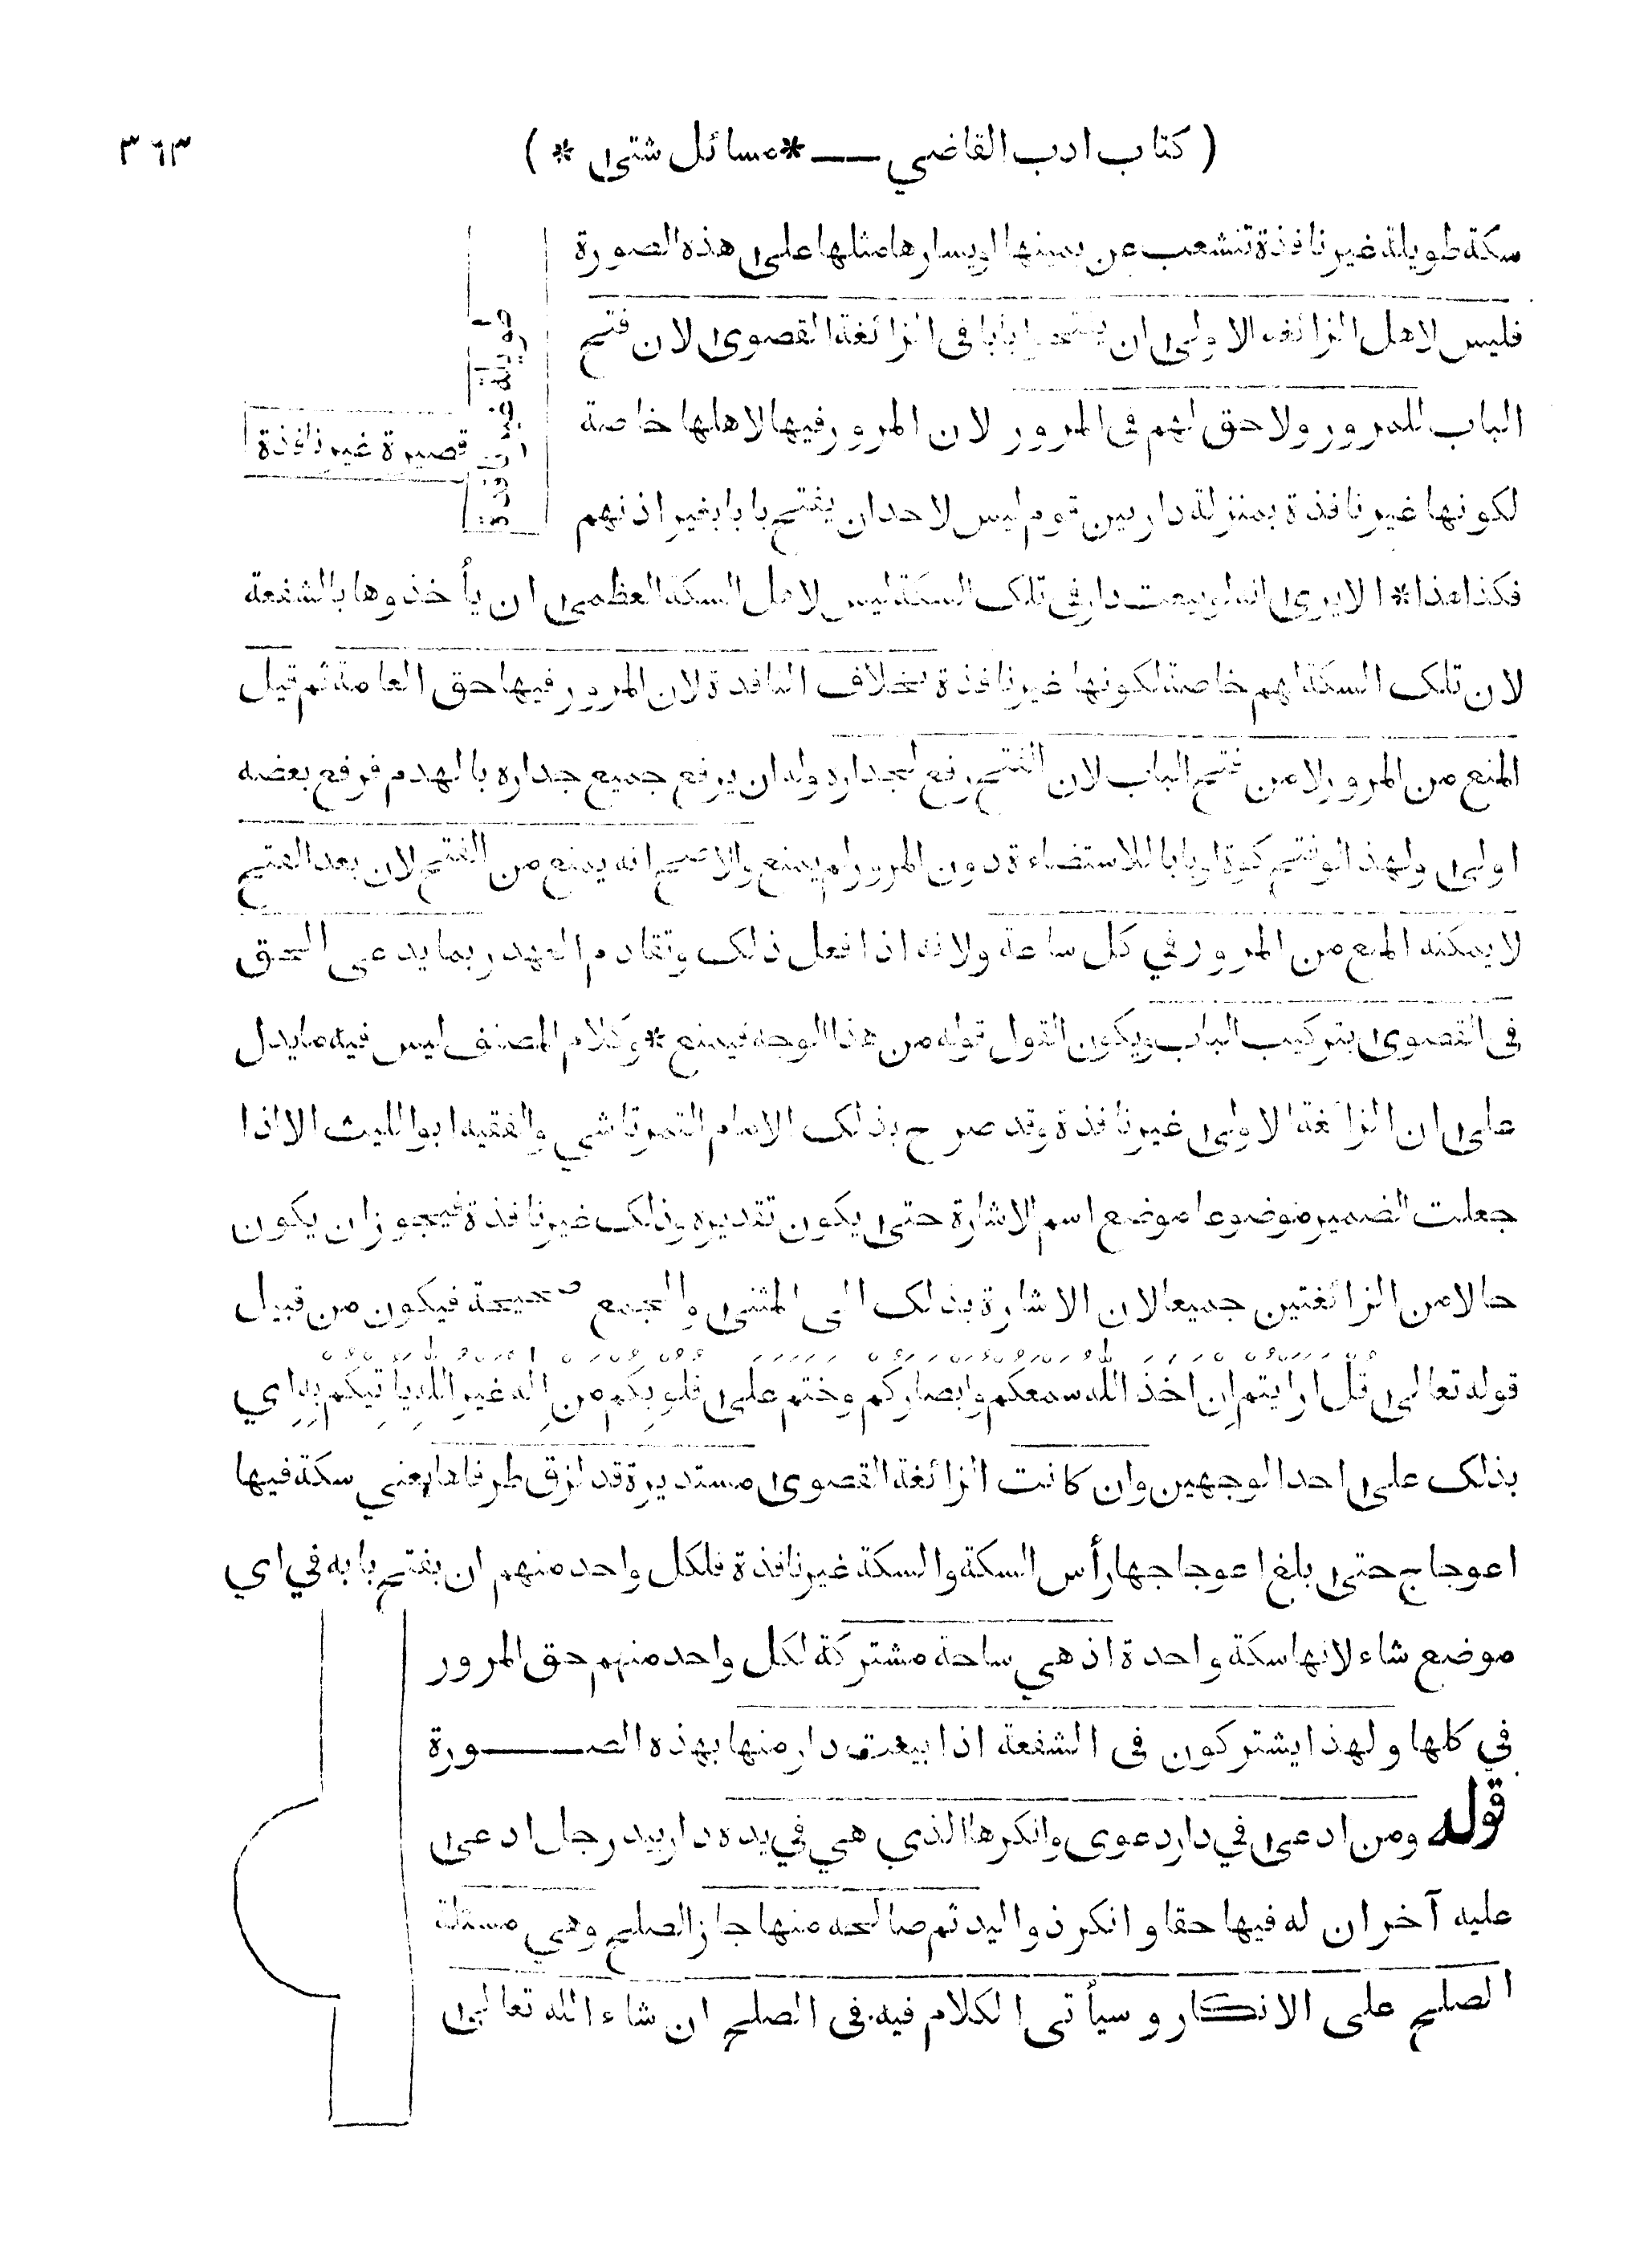 ( كتاب ادب القاضي — * مسائل شتى * )
٣٦٣
سكة طويلة غير نافذة تنشعب عن يمينها او يسارها مثلها على هذه الصورة
فليس لاهل الزائغة الاولى ان يفتحوا بابا في الزائغة القصوى لان فتح
الباب للمرور ولا حق لهم في المرور لان المرور فيها لاهلها خاصة
لكونها غير نافذة بمنزلة دار بين قوم ليس لاحد ان يفتح بابا بغير اذنهم
طويلة غير نافذة
قصيرة غير نافذة
فكذا هذا * الا يرى انه لو بيعت دار في تلك السكة ليس لاهل السكة العظمى ان يأخذوها بالشفعة
لان تلك السكة لهم خاصة لكونها غير نافذة بخلاف النافذة لان المرور فيها حق العامة ثم قيل
المنع من المرور لا من فتح الباب لان الفتح رفع لجداره وله ان يرفع جميع جداره بالهدم فرفع بعضه
اولى ولهذا لو فتح كوة او بابا للاستضاءة دون المرور لم يمنع والاصح انه يمنع من الفتح لان بعد الفتح
لا يمكنه المنع من المرور في كل ساعة ولانه اذا فعل ذلك وتقادم العهد ربما يدعى الحق
في القصوى بتركيب الباب ويكون القول قوله من هذا الوجه فيمنع * وكلام المصنف ليس فيه ما يدل
على ان الزائغة الاولى غير نافذة وقد صرح بذلك الامام التمرتاشي والفقيه ابو الليث الا اذا
جعلت الضمير موضوعا موضع اسم الاشارة حتى يكون تقديره وذلك غير نافذة فيجوز ان يكون
حالا من الزائغتين جميعا لان الاشارة بذلك الى المثنى والجمع صحيحة فيكون من قبيل
قوله تعالى قُلْ اَرَاَيْتُمْ اِنْ اَخَذَ اللّٰهُ سَمْعَكُمْ وَاَبْصَارَكُمْ وَخَتَمَ عَلٰى قُلُوبِكُمْ مَنْ اِلٰهٌ غَيْرُ اللّٰهِ يَاْتِيكُمْ بِهِ اي
بذلك على احد الوجهين وان كانت الزائغة القصوى مستديرة قد لزق طرفاها يعني سكة فيها
اعوجاج حتى بلغ اعوجاجها رأس السكة والسكة غير نافذة فلكل واحد منهم ان يفتح بابه في اي
موضع شاء لانها سكة واحدة اذ هي ساحة مشتركة لكل واحد منهم حق المرور
في كلها ولهذا يشتركون في الشفعة اذا بيعت دار منها بهذه الصــورة
قوله ومن ادعى في دار دعوى وانكرها الذي هي في يده دار بيد رجل ادعى
عليه آخر ان له فيها حقا وانكر ذو اليد ثم صالحه منها جاز الصلح وهي مسئلة
الصلح على الانكار وسيأتى الكلام فيه في الصلح ان شاء الله تعالى